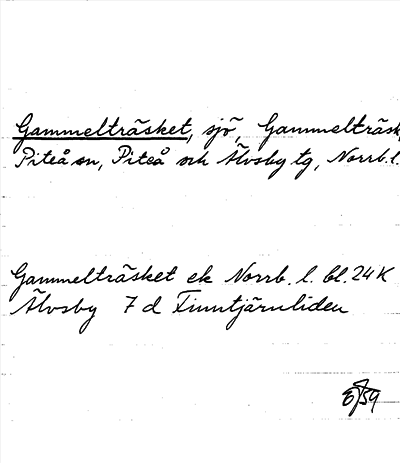 Gammelträsket, sjö, Gammelträsk
Piteå sn, Piteå och Älvsby tg, Norrb. l.
Gammelträsket ek Norrb. l. bl. 24 K
Älvsby 7 d Finntjärnliden